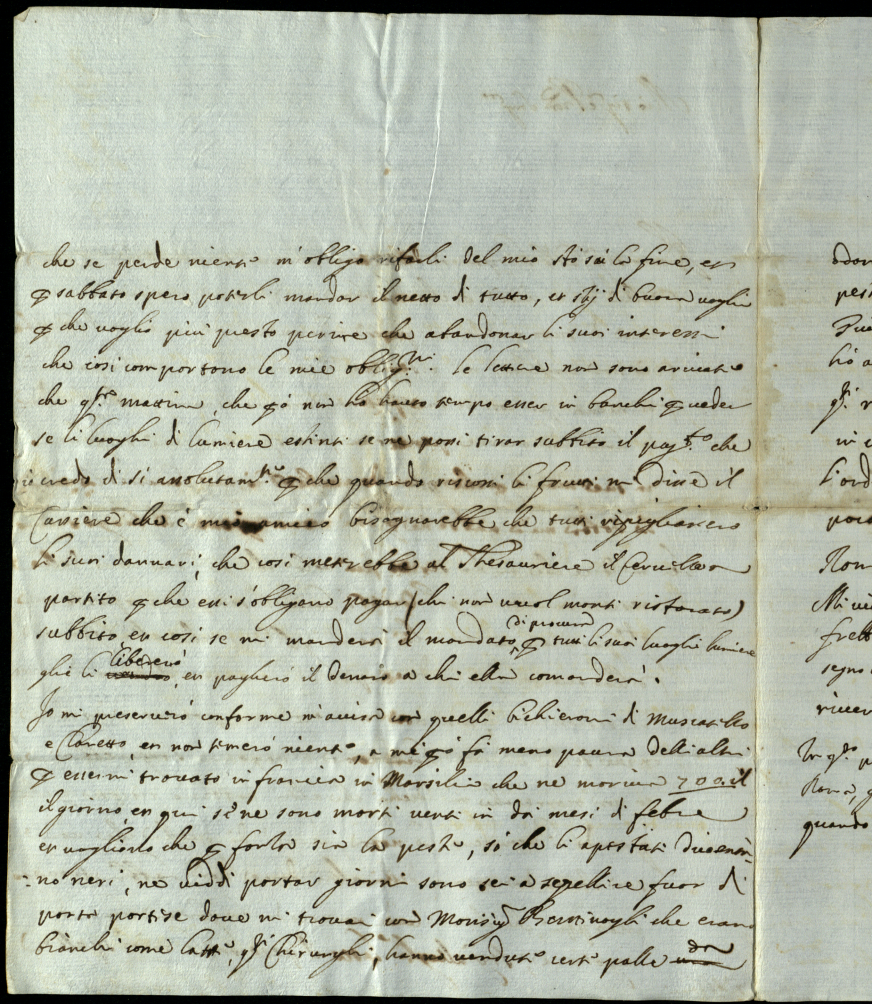 che se perde niente m'obligo rifarli del mio sto sú la fine, et
ꝑ sabbato spero poterli mandar il netto di tutto, et stij di buona voglia
ꝑ che voglio più presto perire che abandonar li suoi interessi
che così comportono le mie oblig.ni. le lettere non sono arivate
che q.ta mattina, che ꝑó non ho hauto tempo esser in banchi ꝑ veder
se li luoghi di lumiere estinti se ne possi tirar subbito il pag.to che
io credo di si assolutam.te ꝑ che quando riscossi li frutti mi disse il
Cassiere che è mio amico bisognarebbe che tutti ripigliassero
li suoi dannari, che così metterebbe al Thesauriere il Cervello a
partito ꝑ che essi s'obligano pagar (chi non vuol monti ristorato)
subbito, et così se mi manderà il mandato di procura ꝑ tutti li suoi luoghi lumiere
glie li libereró, et pagheró il denaro a chi ella comanderà.
Io mi preserveró conforme m'avisa con quelli bichieroni di Muscatello
e Claretto, et non temeró niente, a me ꝑó fa meno paura delli altri
ꝑ essermi trovato in francia in Marsilia che ne moriva 700. il
il giorno, et qui se ne sono morti venti in doi mesi di febre
et vogliono che ꝑ forza sia la peste, si che li apestati diventa-
no neri, ne viddi portar giorni sono sei a sepellire fuor di
porta portese dove mi trovai con Monsig.r Bentivogli che erano
bianchi come latte, q.ti Chirurghi, hanno vendute certe palle da
odor
pest
ho a
in c
Rom
frett
segno
river
Roma, q
quando